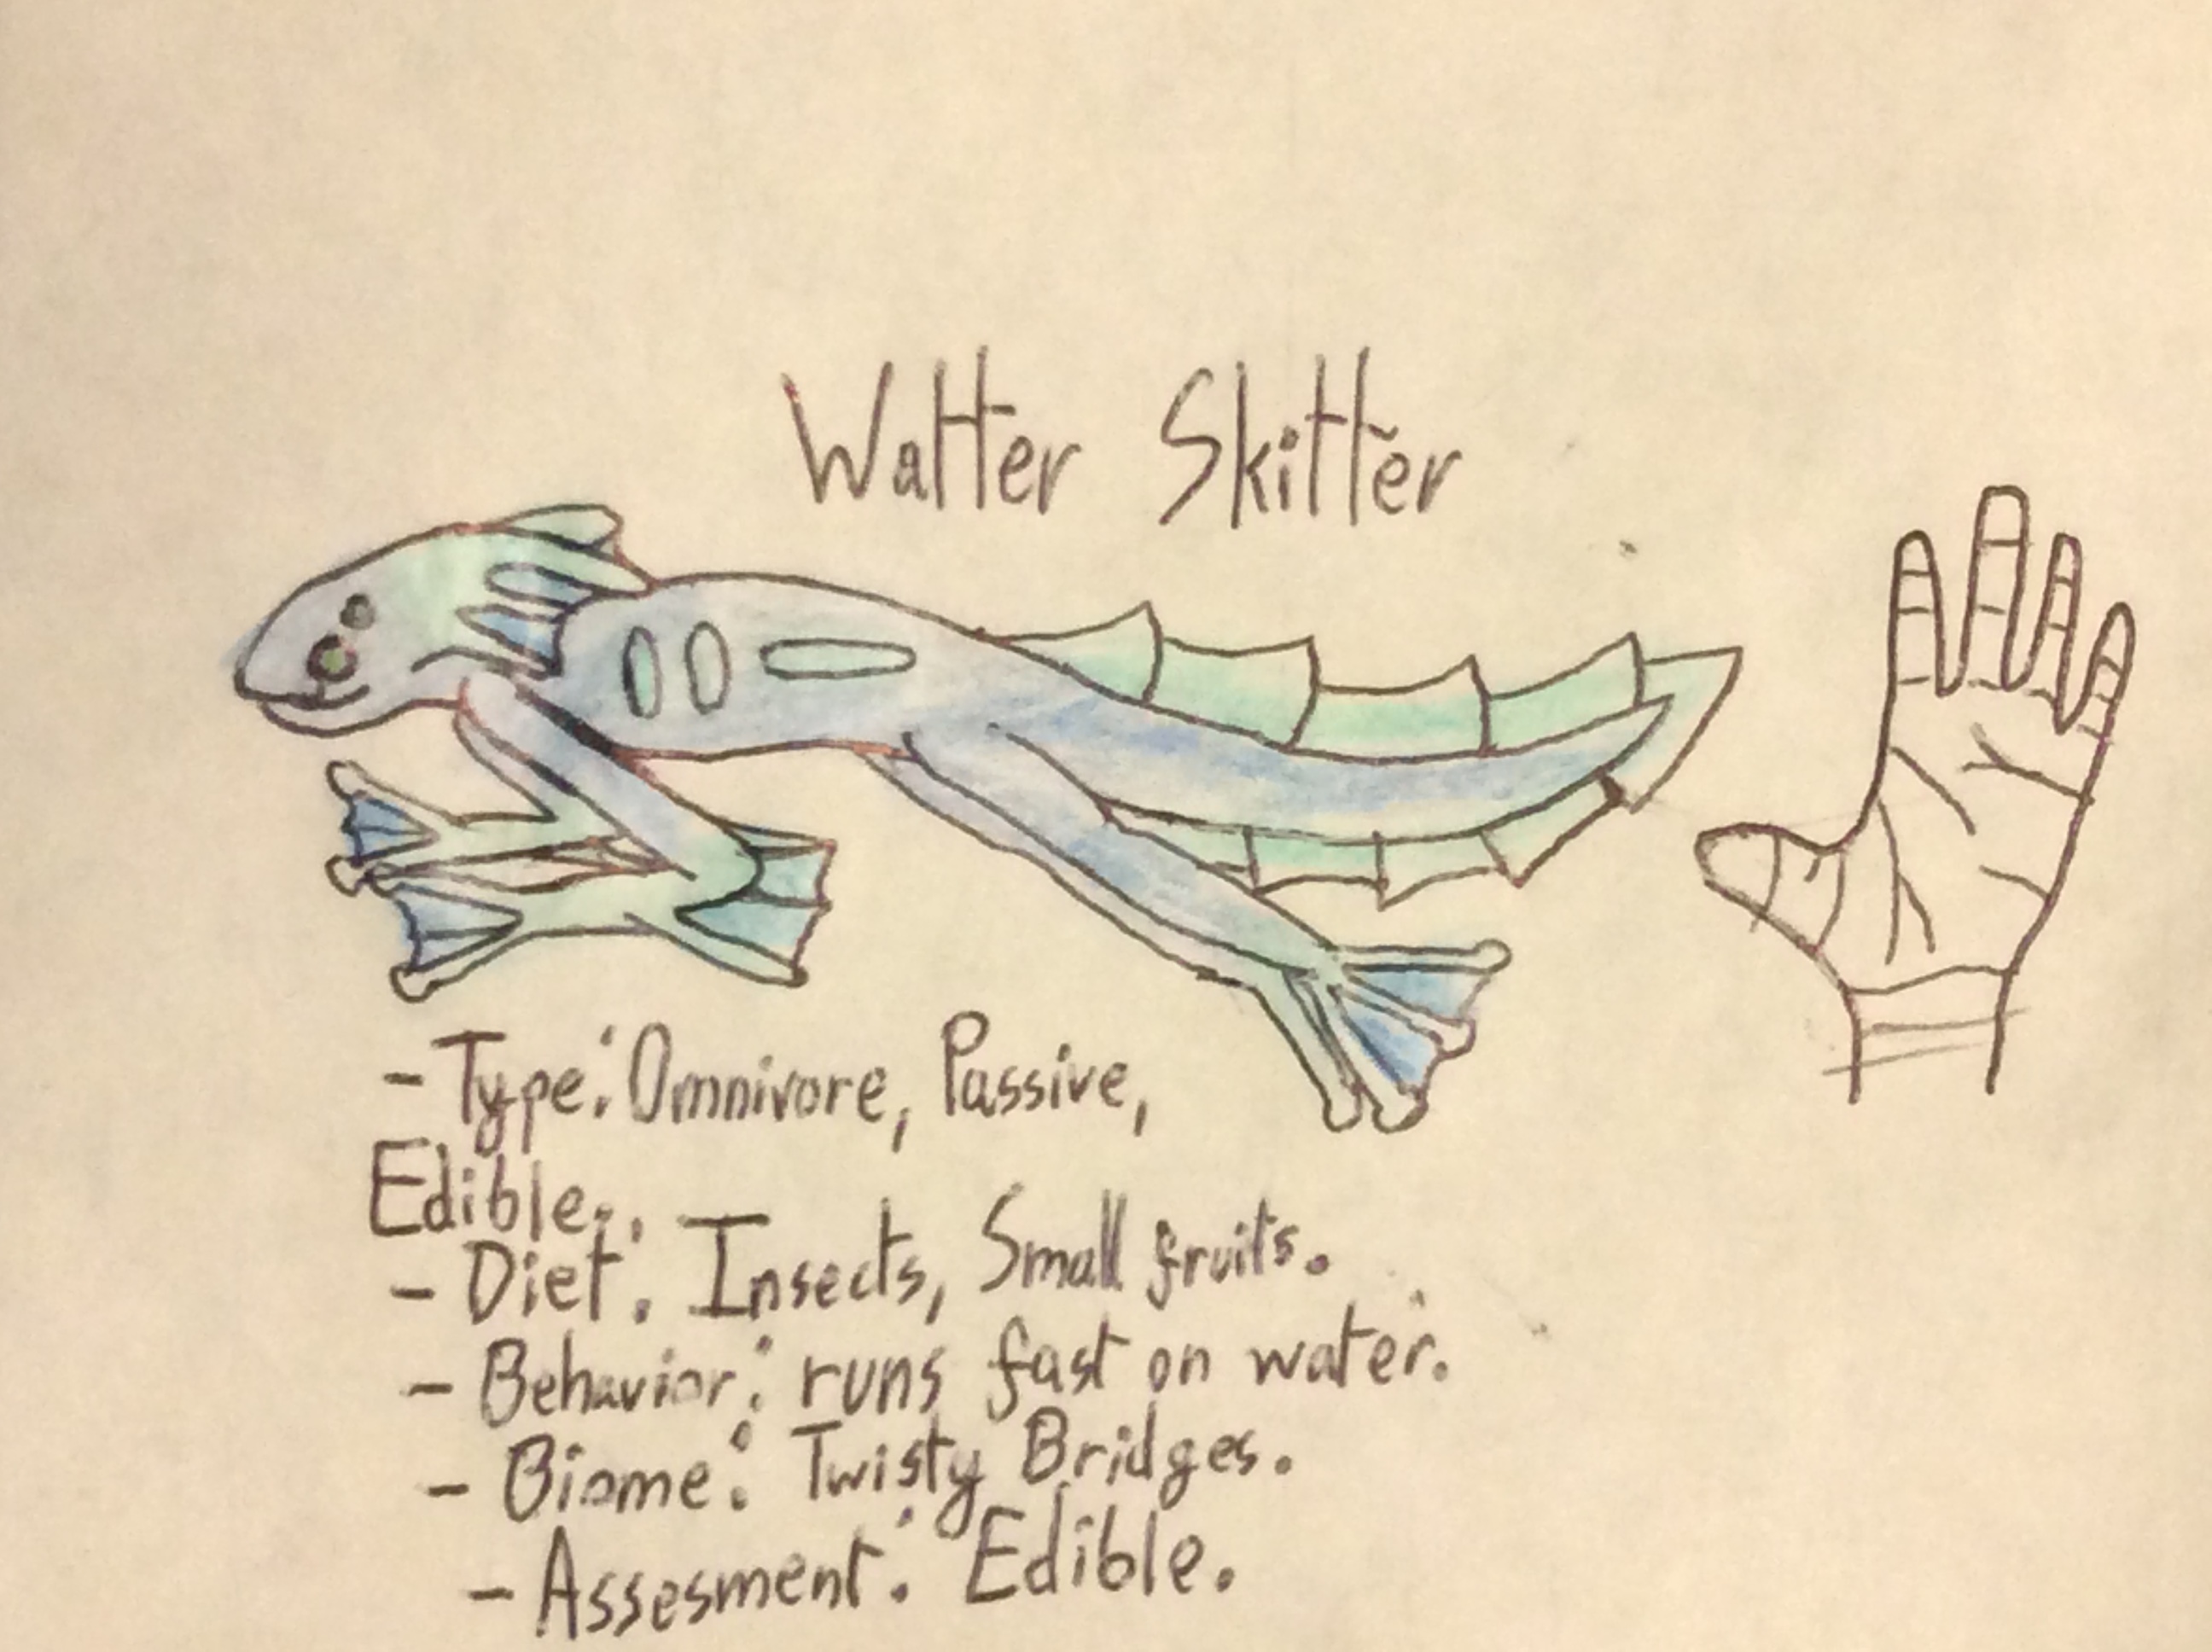 Watter Skitter
- Type: Omnivore, Passive,
Edible.
- Diet: Insects, Small fruits.
- Behavior: runs fast on water.
- Biome: Twisty Bridges.
- Assesment: Edible.